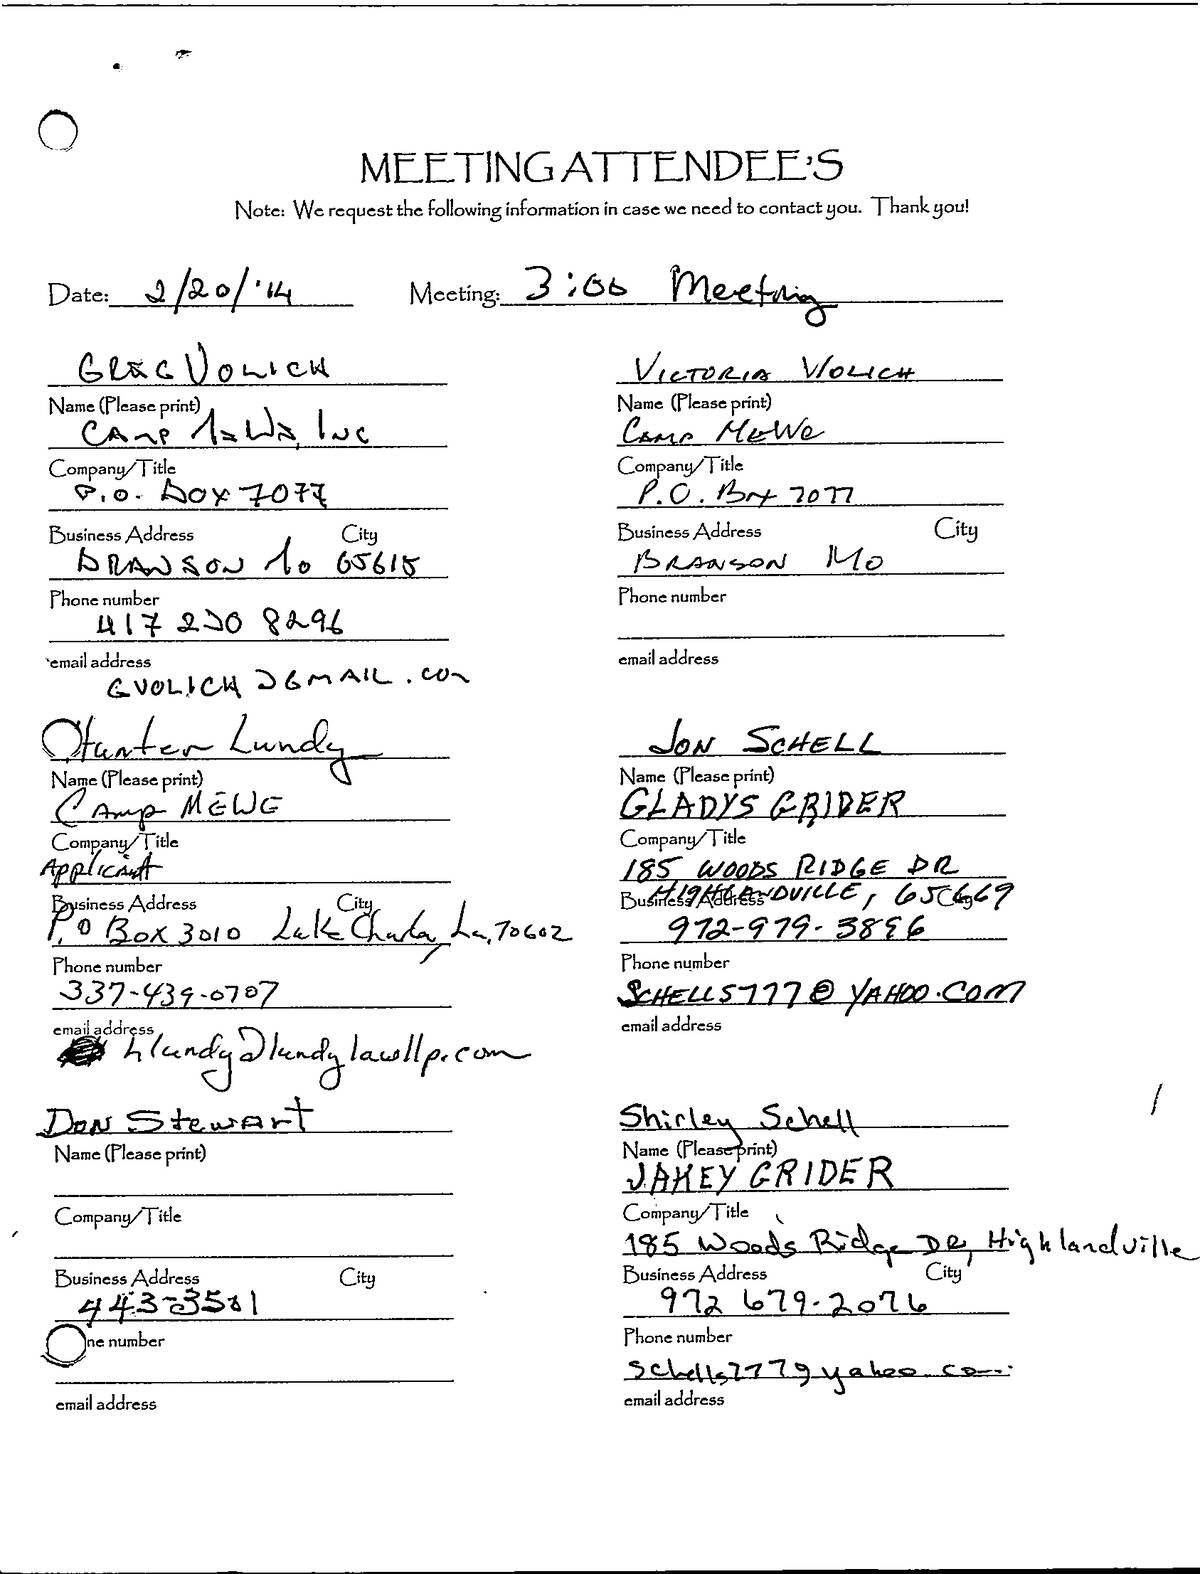 MEETING ATTENDEE'S
Note: We request the following information in case we need to contact you. Thank you!
Date: 2/20/'14 Meeting: 3:00 Meeting
GREG VOLICH
Name (Please print)
CAMP MEWE, INC
Company/Title
P.O. BOX 7077
Business Address City
BRANSON MO 65615
Phone number
417 230 8296
email address
GVOLICH@GMAIL.COM
VICTORIA VOLICH
Name (Please print)
CAMP MEWE
Company/Title
P.O. Box 7077
Business Address City
BRANSON MO
Phone number
email address
Hunter Lundy
Name (Please print)
Camp MEWE
Company/Title
Applicant
Business Address City
P.O Box 3010 Lake Charles, La, 70602
Phone number
337-439-0707
email address
hlundy@lundylawllp.com
JON SCHELL
Name (Please print)
GLADYS GRIDER
Company/Title
185 WOODS RIDGE DR
Business Address City
HIGHLANDVILLE, 65669
972-979-3896
Phone number
SCHELLS777@YAHOO.COM
email address
Don Stewart
Name (Please print)
Company/Title
Business Address City
443-3501
ne number
email address
Shirley Schell
Name (Please print)
JAKEY GRIDER
Company/Title
185 Woods Ridge DR, Highlandville
Business Address City
972 679-2076
Phone number
schells777@yahoo.com
email address